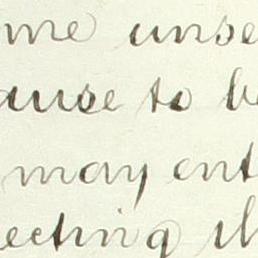 me unse
ause to be
may ent
ecting th